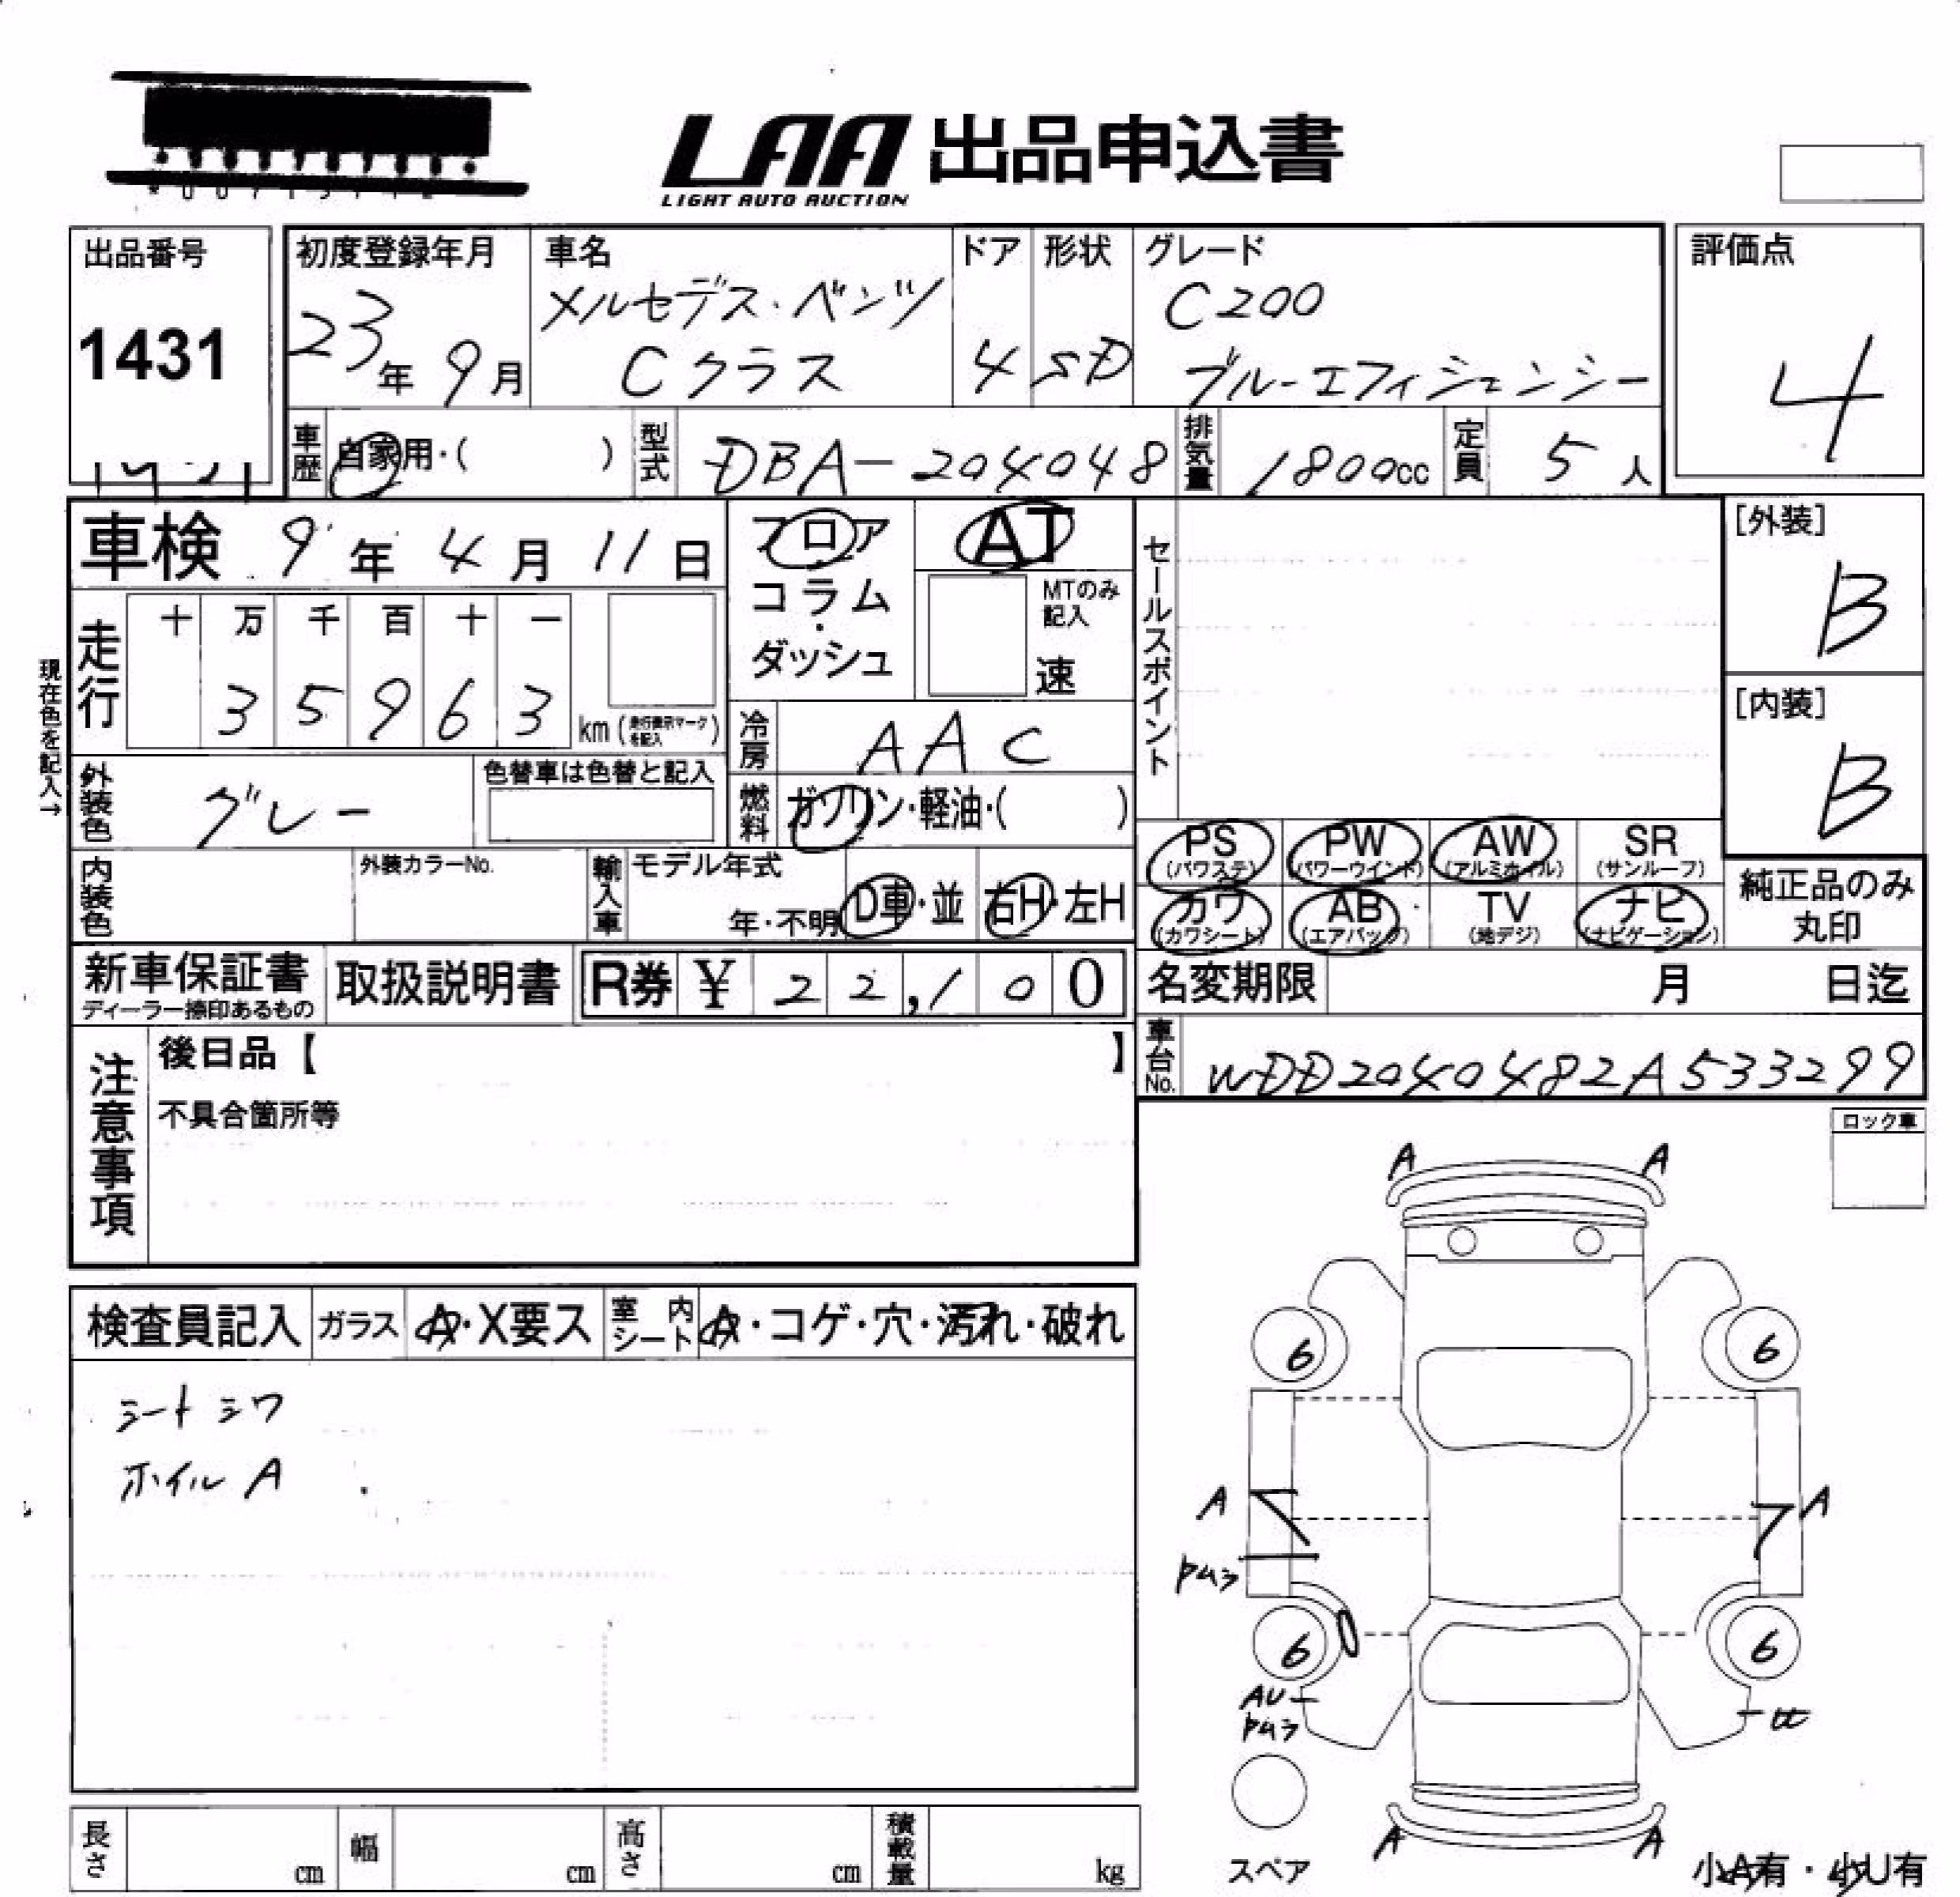 LAA 出品申込書
LIGHT AUTO AUCTION
出品番号
1431
初度登録年月
23年 9月
車名
メルセデス・ベンツ
Cクラス
ドア
4
形状
SD
グレード
C200
ブルーエフィシェンシー
評価点
4
車歴 自家用・( )
型式 DBA-204048
排気量 1800cc
定員 5人
車検 9年 4月 11日
フロア
コラム
・
ダッシュ
AT
MTのみ
記入
速
セールスポイント
[外装]
B
[内装]
B
現在色を記入→
走行
十 万 千 百 十 一
3 5 9 6 3
km (走行表示マークを記入)
冷房 AAC
外装色 グレー
色替車は色替と記入
燃料 ガソリン・軽油・( )
PS
(パワステ)
PW
(パワーウインド)
AW
(アルミホイル)
SR
(サンルーフ)
カワ
(カワシート)
AB
(エアバッグ)
TV
(地デジ)
ナビ
(ナビゲーション)
純正品のみ
丸印
内装色
外装カラーNo.
輸入車
モデル年式
年・不明
D車・並
右H・左H
新車保証書
ディーラー捺印あるもの
取扱説明書
R券 ¥ 2 2,1 0 0
名変期限 月 日迄
車台No. WDD2040482A533299
注意事項
後日品【 】
不具合箇所等
ロック車
検査員記入
ガラス A・X要ス
室内シート A・コゲ・穴・汚れ・破れ
シートシワ
ホイルA
A A
6 6
A A
6 6
AU
A A
スペア
小A有・小U有
長さ cm
幅 cm
高さ cm
積載量 kg